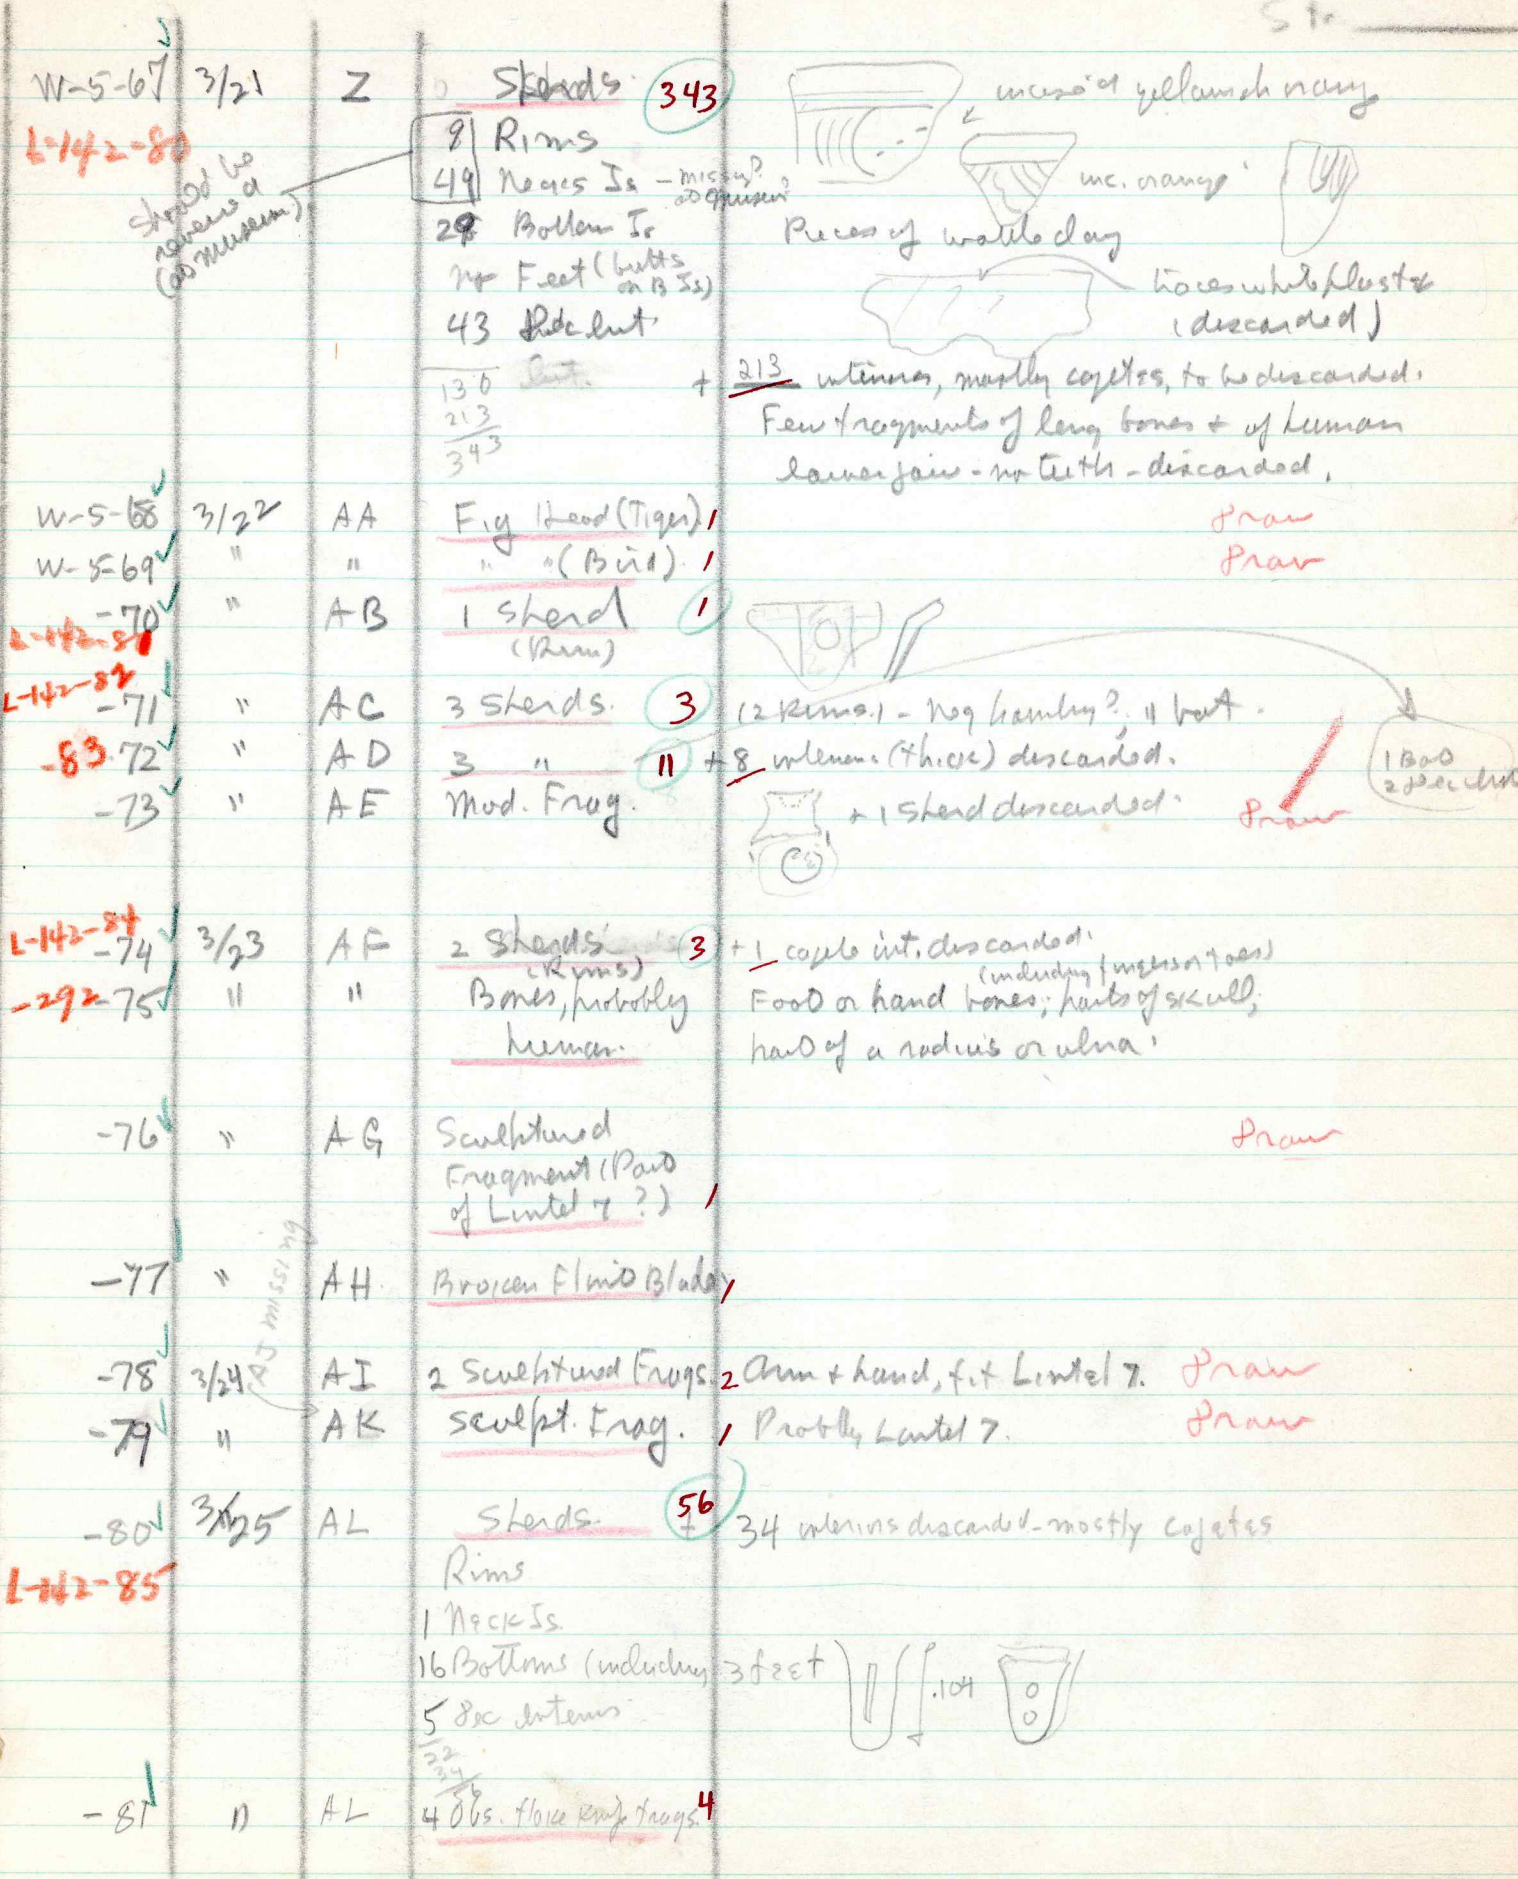 Str.
W-5-67 3/21 Z Sherds 343 incised yellowish orange
L-142-80
9 Rims
should be
49 Necks Is - missing? inc. orange
at museum?
(at museum)
29 Bottom Is Pieces of wattle clay
no Feet (butts
on B Is)
traces white plaster
43 Dec but (discarded)
130 + 213 interiors, mostly cajetes, to be discarded.
213 Few fragments of long bones & of human
343 lower jaw - no teeth - discarded.
W-5-68 3/22 AA Fig Head (Tiger) 1 Draw
W-5-69 " " " " (Bird) 1 Draw
-70 " AB 1 Sherd 1
L-142-81 (Rim)
L-142-82
-71 " AC 3 Sherds. 3 (2 Rims)
-83 -72 " AD 3 " 11 + 8 interiors (thick) discarded. 1 Bot
-73 " AE Mod. Frag. + 1 sherd discarded. Draw
L-142-84
-74 3/23 AF 2 Sherds 3 + 1 cajete int. discarded.
(Rims) (including fingers or toes)
-292 -75 " " Bones, probably Foot or hand bones; parts of skull;
human. part of a radius or ulna.
-76 " AG Sculptured Draw
Fragment (Part
of Lintel 7?) 1
-77 " AH Broken Flint Blade 1
AJ missing
-78 3/24 AI 2 Sculptured Frags. 2 Arm & hand, fit Lintel 7. Draw
-79 " AK Sculpt. Frag. 1 Probly Lintel 7. Draw
-80 3/25 AL Sherds. 56 + 34 interiors discarded - mostly cajetes
L-142-85
Rims
1 Neck Is.
16 Bottoms (including 3 feet .104
5 Dec interns
22
34
56
-81 " AL 4 Obs. flake knife frags. 4